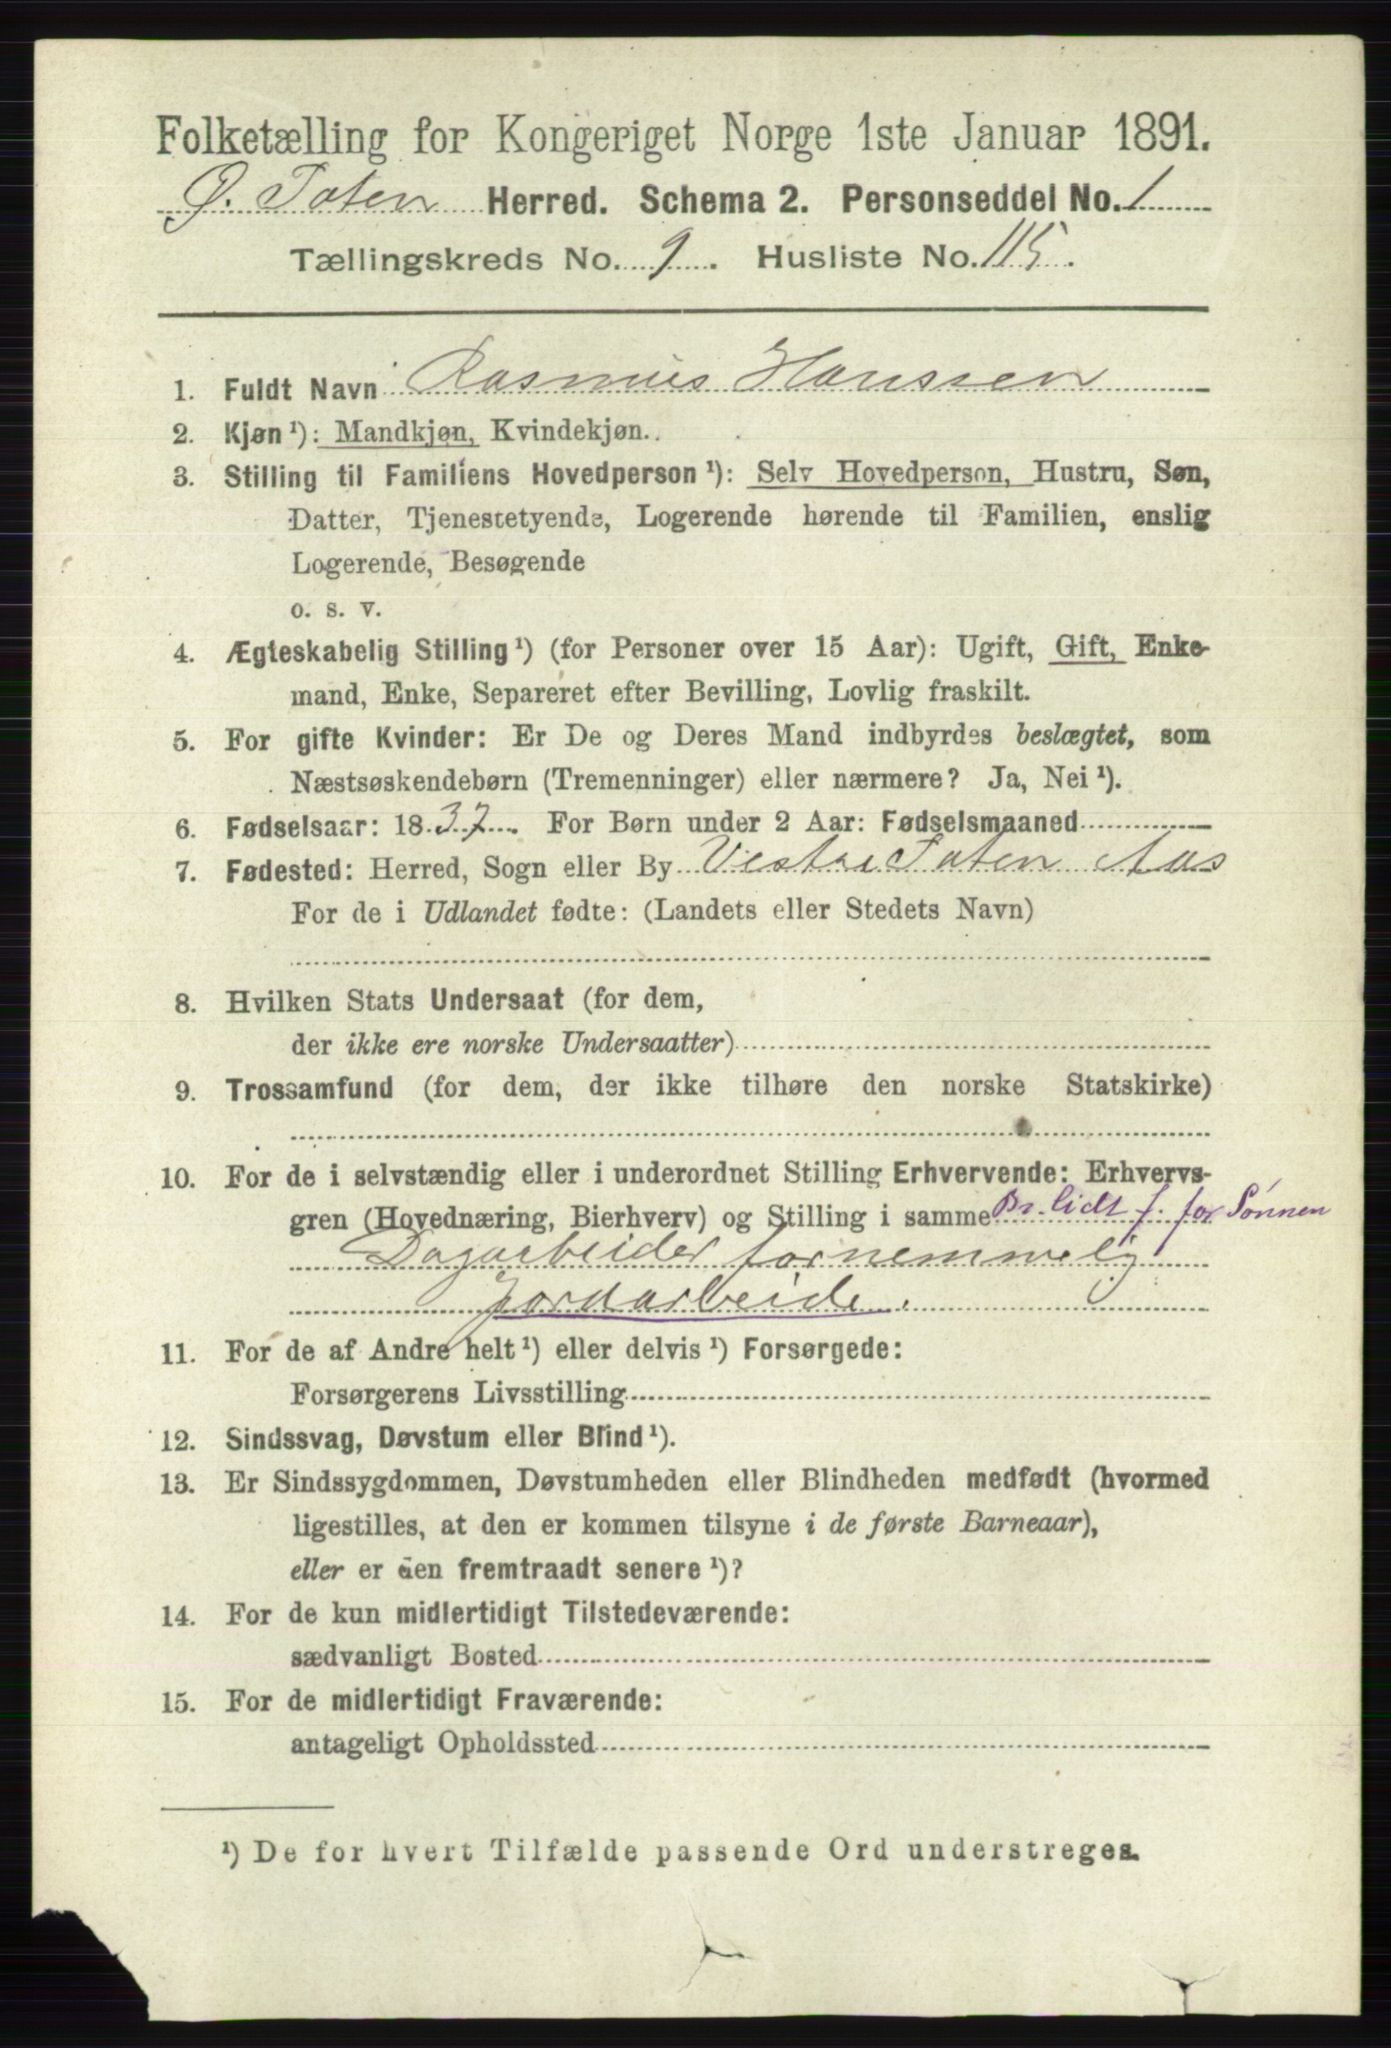 Folketælling for Kongeriget Norge 1ste Januar 1891.
Ø. Toten Herred. Schema 2. Personseddel No. 1
Tællingskreds No. 9. Husliste No. 115.
1. Fuldt Navn Rasmus Hanssen
2. Kjøn ¹): Mandkjøn, Kvindekjøn.
3. Stilling til Familiens Hovedperson ¹): Selv Hovedperson, Hustru, Søn,
Datter, Tjenestetyende, Logerende hørende til Familien, enslig
Logerende, Besøgende
o. s. v.
4. Ægteskabelig Stilling ¹) (for Personer over 15 Aar): Ugift, Gift, Enke-
mand, Enke, Separeret efter Bevilling, Lovlig fraskilt.
5. For gifte Kvinder: Er De og Deres Mand indbyrdes beslægtet, som
Næstsøskendebørn (Tremenninger) eller nærmere? Ja, Nei ¹).
6. Fødselsaar: 1837. For Børn under 2 Aar: Fødselsmaaned
7. Fødested: Herred, Sogn eller By Vestre Toten Aas
For de i Udlandet fødte: (Landets eller Stedets Navn)
8. Hvilken Stats Undersaat (for dem,
der ikke ere norske Undersaatter)
9. Trossamfund (for dem, der ikke tilhøre den norske Statskirke)
10. For de i selvstændig eller i underordnet Stilling Erhvervende: Erhvervs-
gren (Hovednæring, Bierhverv) og Stilling i samme Br. lidt j. for Sønnen
Dagarbeider fornemmelig
jordarbeide.
11. For de af Andre helt ¹) eller delvis ¹) Forsørgede:
Forsørgerens Livsstilling
12. Sindssvag, Døvstum eller Blind ¹).
13. Er Sindssygdommen, Døvstumheden eller Blindheden medfødt (hvormed
ligestilles, at den er kommen tilsyne i de første Barneaar),
eller er den fremtraadt senere ¹)?
14. For de kun midlertidigt Tilstedeværende:
sædvanligt Bosted
15. For de midlertidigt Fraværende:
antageligt Opholdssted
¹) De for hvert Tilfælde passende Ord understreges.